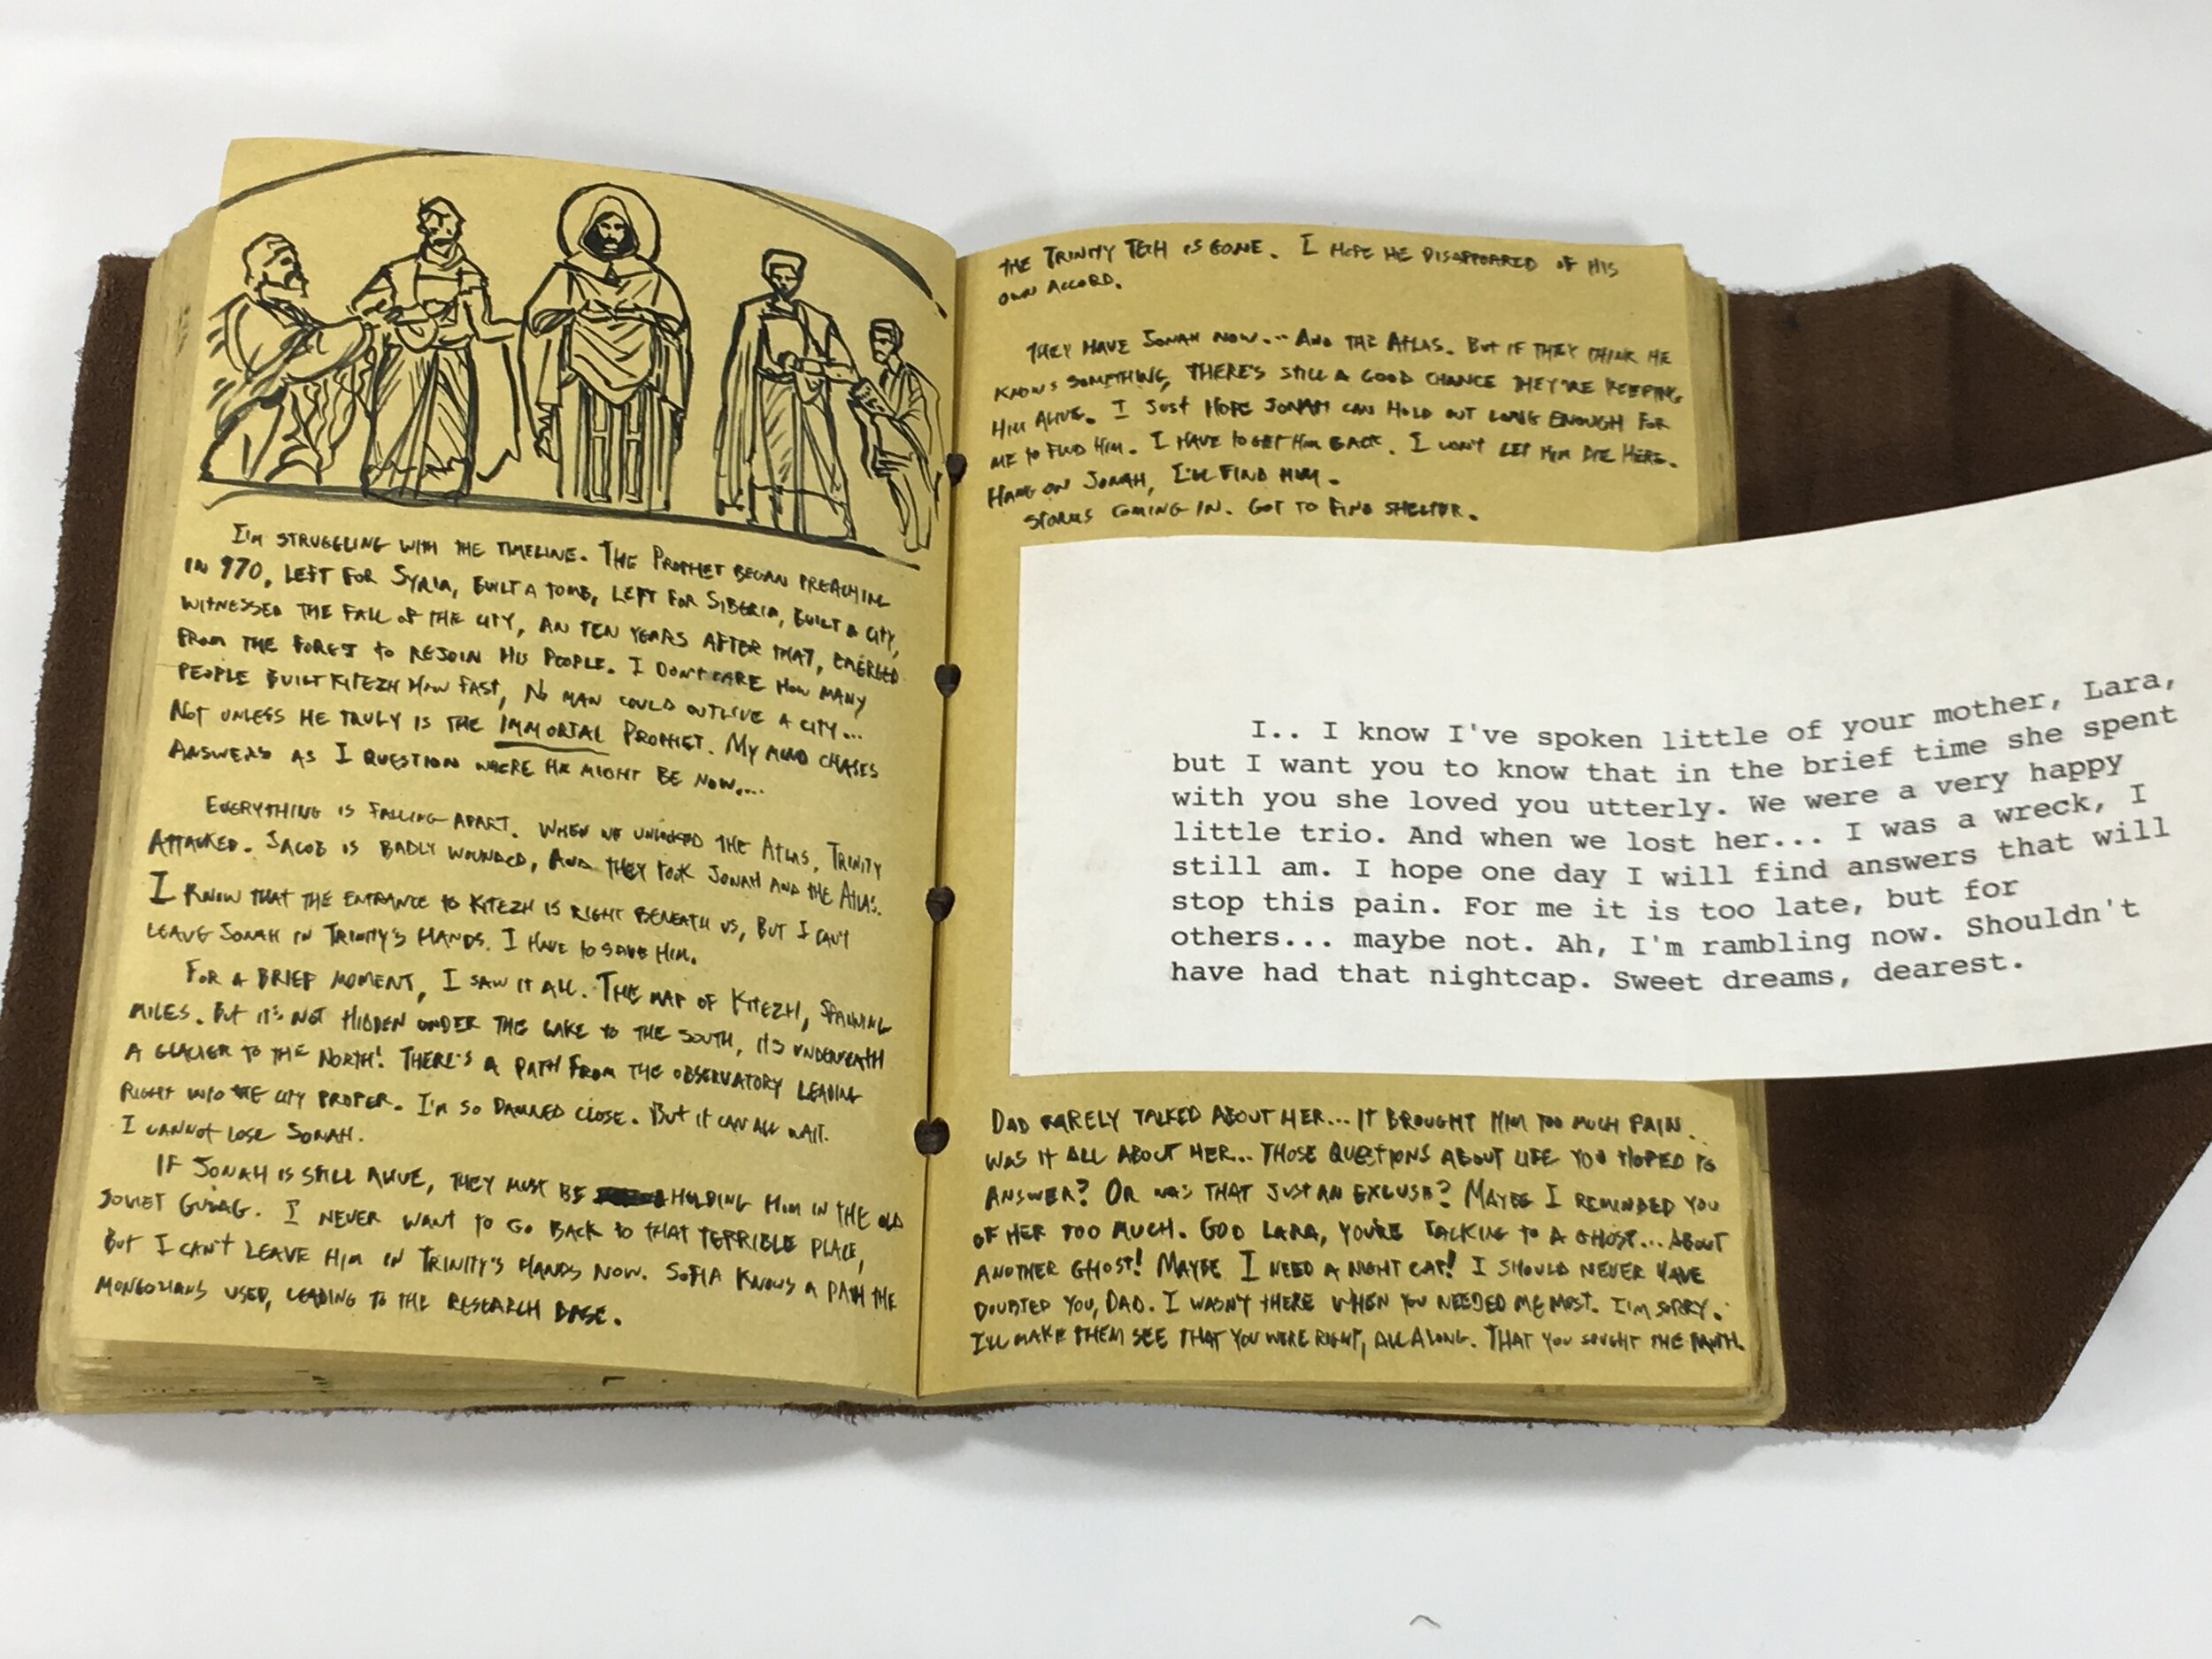 I'm struggling with the timeline. The Prophet began preaching
in 970, left for Syria, built a tomb, left for Siberia, built a city,
witnessed the fall of the city, an ten years after that, emerged
from the forest to rejoin his people. I don't care how many
people built Kitezh how fast, no man could outlive a city...
Not unless he truly is the Immortal Prophet. My mind chases
answers as I question where he might be now....
Everything is falling apart. When we unlocked the Atlas, Trinity
attacked. Jacob is badly wounded, and they took Jonah and the Atlas.
I know that the entrance to Kitezh is right beneath us, but I can't
leave Jonah in Trinity's hands. I have to save him.
For a brief moment, I saw it all. The map of Kitezh, spanning
miles. But it's not hidden under the lake to the south, its underneath
a glacier to the north! There's a path from the observatory leading
right into the city proper. I'm so damned close. But it can all wait.
I cannot lose Jonah.
If Jonah is still alive, they must be holding him in the old
Soviet Gulag. I never want to go back to that terrible place,
but I can't leave him in Trinity's hands now. Sofia knows a path the
Mongolians used, leading to the research base.
The Trinity tech is gone. I hope he disappeared of his
own accord.
They have Jonah now... And the Atlas. But if they think he
knows something, there's still a good chance they're keeping
him alive. I just hope Jonah can hold out long enough for
me to find him. I have to get him back. I won't let him die here.
Hang on Jonah, I'll find him.
Storms coming in. Got to find shelter.
I.. I know I've spoken little of your mother, Lara,
but I want you to know that in the brief time she spent
with you she loved you utterly. We were a very happy
little trio. And when we lost her... I was a wreck, I
still am. I hope one day I will find answers that will
stop this pain. For me it is too late, but for
others... maybe not. Ah, I'm rambling now. Shouldn't
have had that nightcap. Sweet dreams, dearest.
Dad rarely talked about her... it brought him too much pain.
Was it all about her... those questions about life you hoped to
answer? Or was that just an excuse? Maybe I reminded you
of her too much. God Lara, you're talking to a ghost... about
another ghost! Maybe I need a night cap! I should never have
doubted you, Dad. I wasn't there when you needed me most. I'm sorry.
I'll make them see that you were right, all along. That you sought the truth.